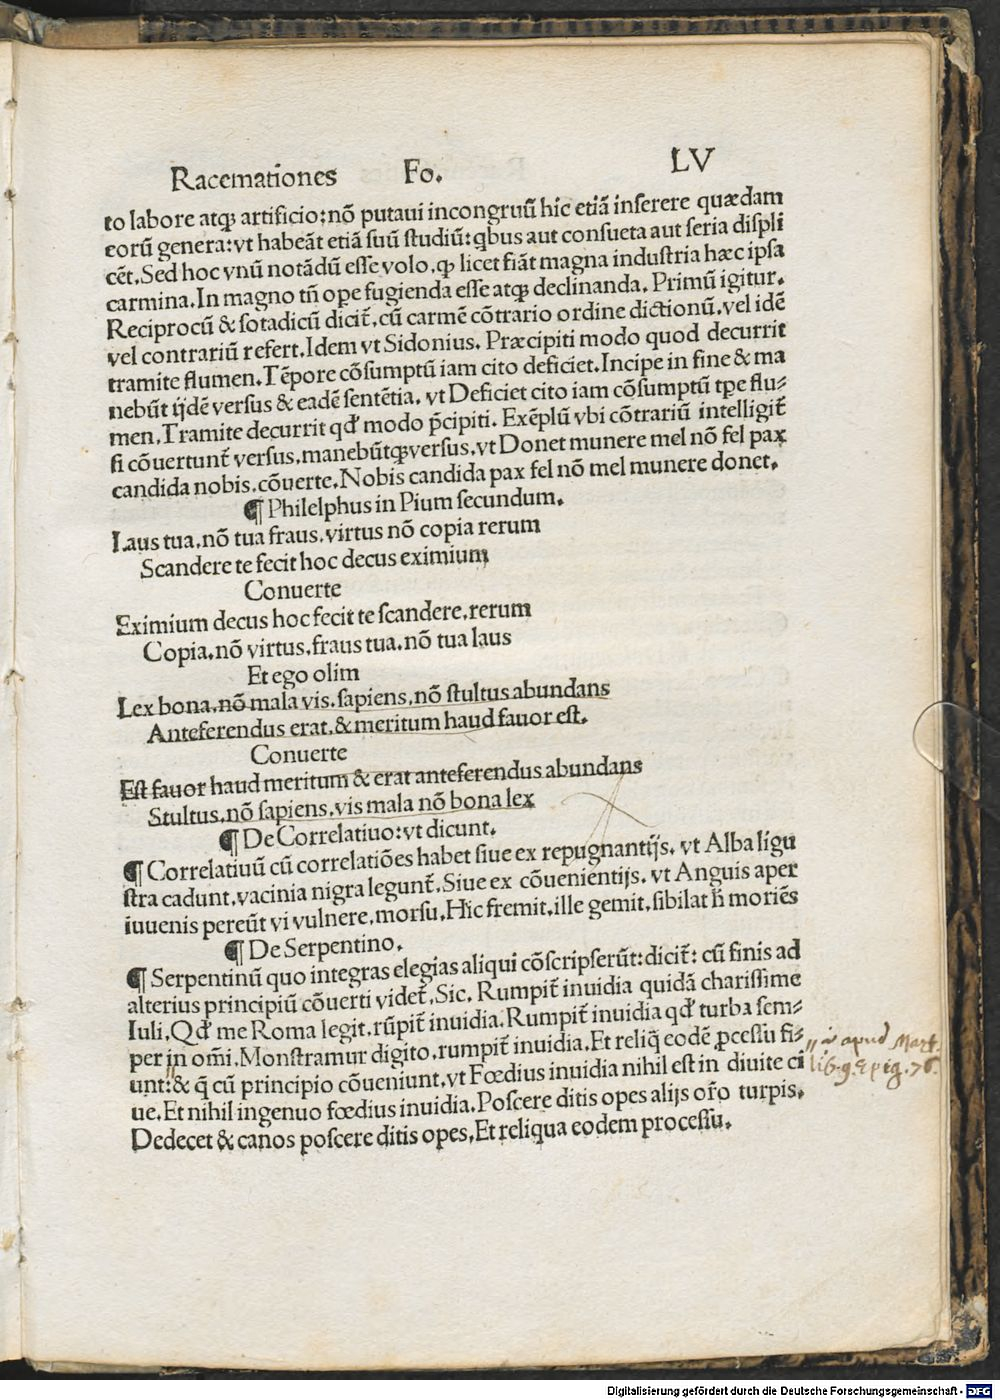 Racemationes Fo. LV
to labore atqꝫ artificio: nō putaui incongruū hic etiā inserere quædam
eorū genera: vt habeāt etiā suū studiū: qbus aut consueta aut seria displi
cēt. Sed hoc vnū notādū esse volo, ꝙ licet fiāt magna industria hæc ipsa
carmina. In magno tn̄ ope fugienda esse atqꝫ declinanda. Primū igitur.
Reciprocū & sotadicū dicit̄, cū carmē cōtrario ordine dictionū, vel idē
vel contrariū refert. Idem vt Sidonius. Præcipiti modo quod decurrit
tramite flumen. Tēpore cōsumptū iam cito deficiet. Incipe in fine & ma
nebūt ijdē versus & eadē sentētia, vt Deficiet cito iam cōsumptū tpe flu⸗
men. Tramite decurrit qđ modo p̄cipiti. Exēplū vbi cōtrariū intelligit̄
si cōuertunt̄ versus, manebūtqꝫ versus, vt Donet munere mel nō fel pax
candida nobis, cōuerte. Nobis candida pax fel nō mel munere donet.
¶ Philelphus in Pium secundum.
Laus tua, nō tua fraus, virtus nō copia rerum
Scandere te fecit hoc decus eximium
Conuerte
Eximium decus hoc fecit te scandere, rerum
Copia, nō virtus, fraus tua, nō tua laus
Et ego olim
Lex bona, nō mala vis, sapiens, nō stultus abundans
Anteferendus erat, & meritum haud fauor est.
Conuerte
Est fauor haud meritum & erat anteferendus abundans
Stultus, nō sapiens, vis mala nō bona lex
¶ De Correlatiuo: vt dicunt.
¶ Correlatiuū cū correlatiōes habet siue ex repugnantijs, vt Alba ligu
stra cadunt, vacinia nigra legunt̄. Siue ex cōuenientijs, vt Anguis aper
iuuenis pereūt vi vulnere, morsu. Hic fremit, ille gemit, sibilat h̄ moriēs
¶ De Serpentino.
¶ Serpentinū quo integras elegias aliqui cōscripserūt: dicit̄: cū finis ad
alterius principiū cōuerti videt̄, Sic. Rumpit̄ inuidia quidā charissime
Iuli, Qđ me Roma legit, rūpit̄ inuidia. Rumpit̄ inuidia qđ turba sem⸗
per in om̄i. Monstramur digito, rumpit̄ inuidia. Et reliq̄ eodē ꝓcessu fi⸗
unt: & q̄ cū principio cōueniunt, vt Fœdius inuidia nihil est in diuite ci
ue. Et nihil ingenuo fœdius inuidia. Poscere ditis opes alijs or̄o turpis.
Dedecet & canos poscere ditis opes, Et reliqua eodem processu.
apud Mart.
lib. 9. Epig. 76.
Digitalisierung gefördert durch die Deutsche Forschungsgemeinschaft - DFG